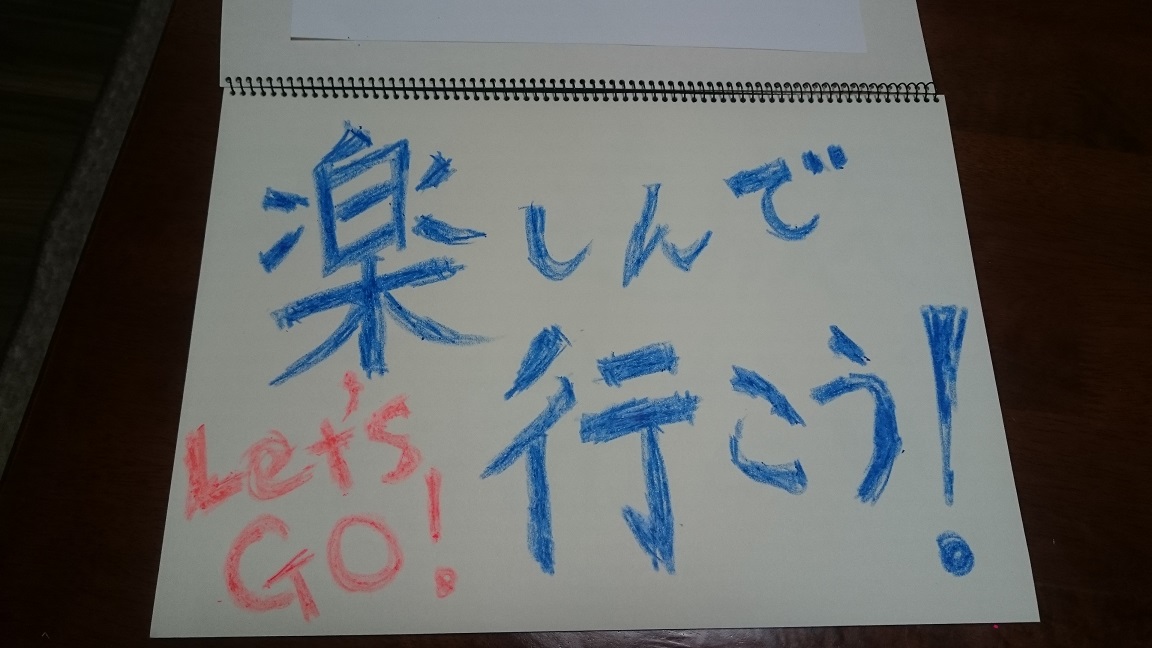 楽しんで
行こう!
Let's
GO!